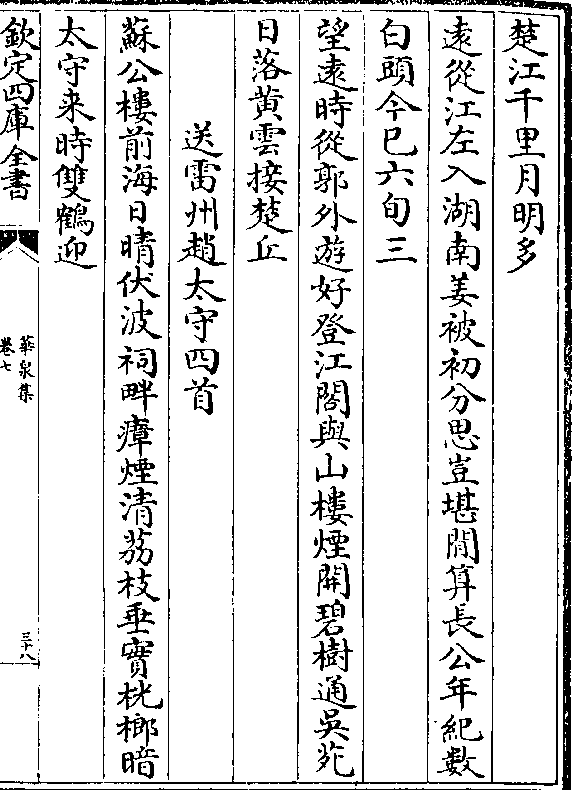 楚江千里月明多
遠從江左入湖南姜被初分思豈堪閒算長公年紀數
白頭今已六旬三
望遠時從郭外遊好登江閣與山樓煙開碧樹通吳苑
日落黄雲接楚丘
送雷州趙太守四首
蘇公樓前海日晴伏波祠畔瘴煙清荔枝垂實桄榔暗
太守来時雙鶴迎
欽定四庫全書
華泉集
卷七
三十八